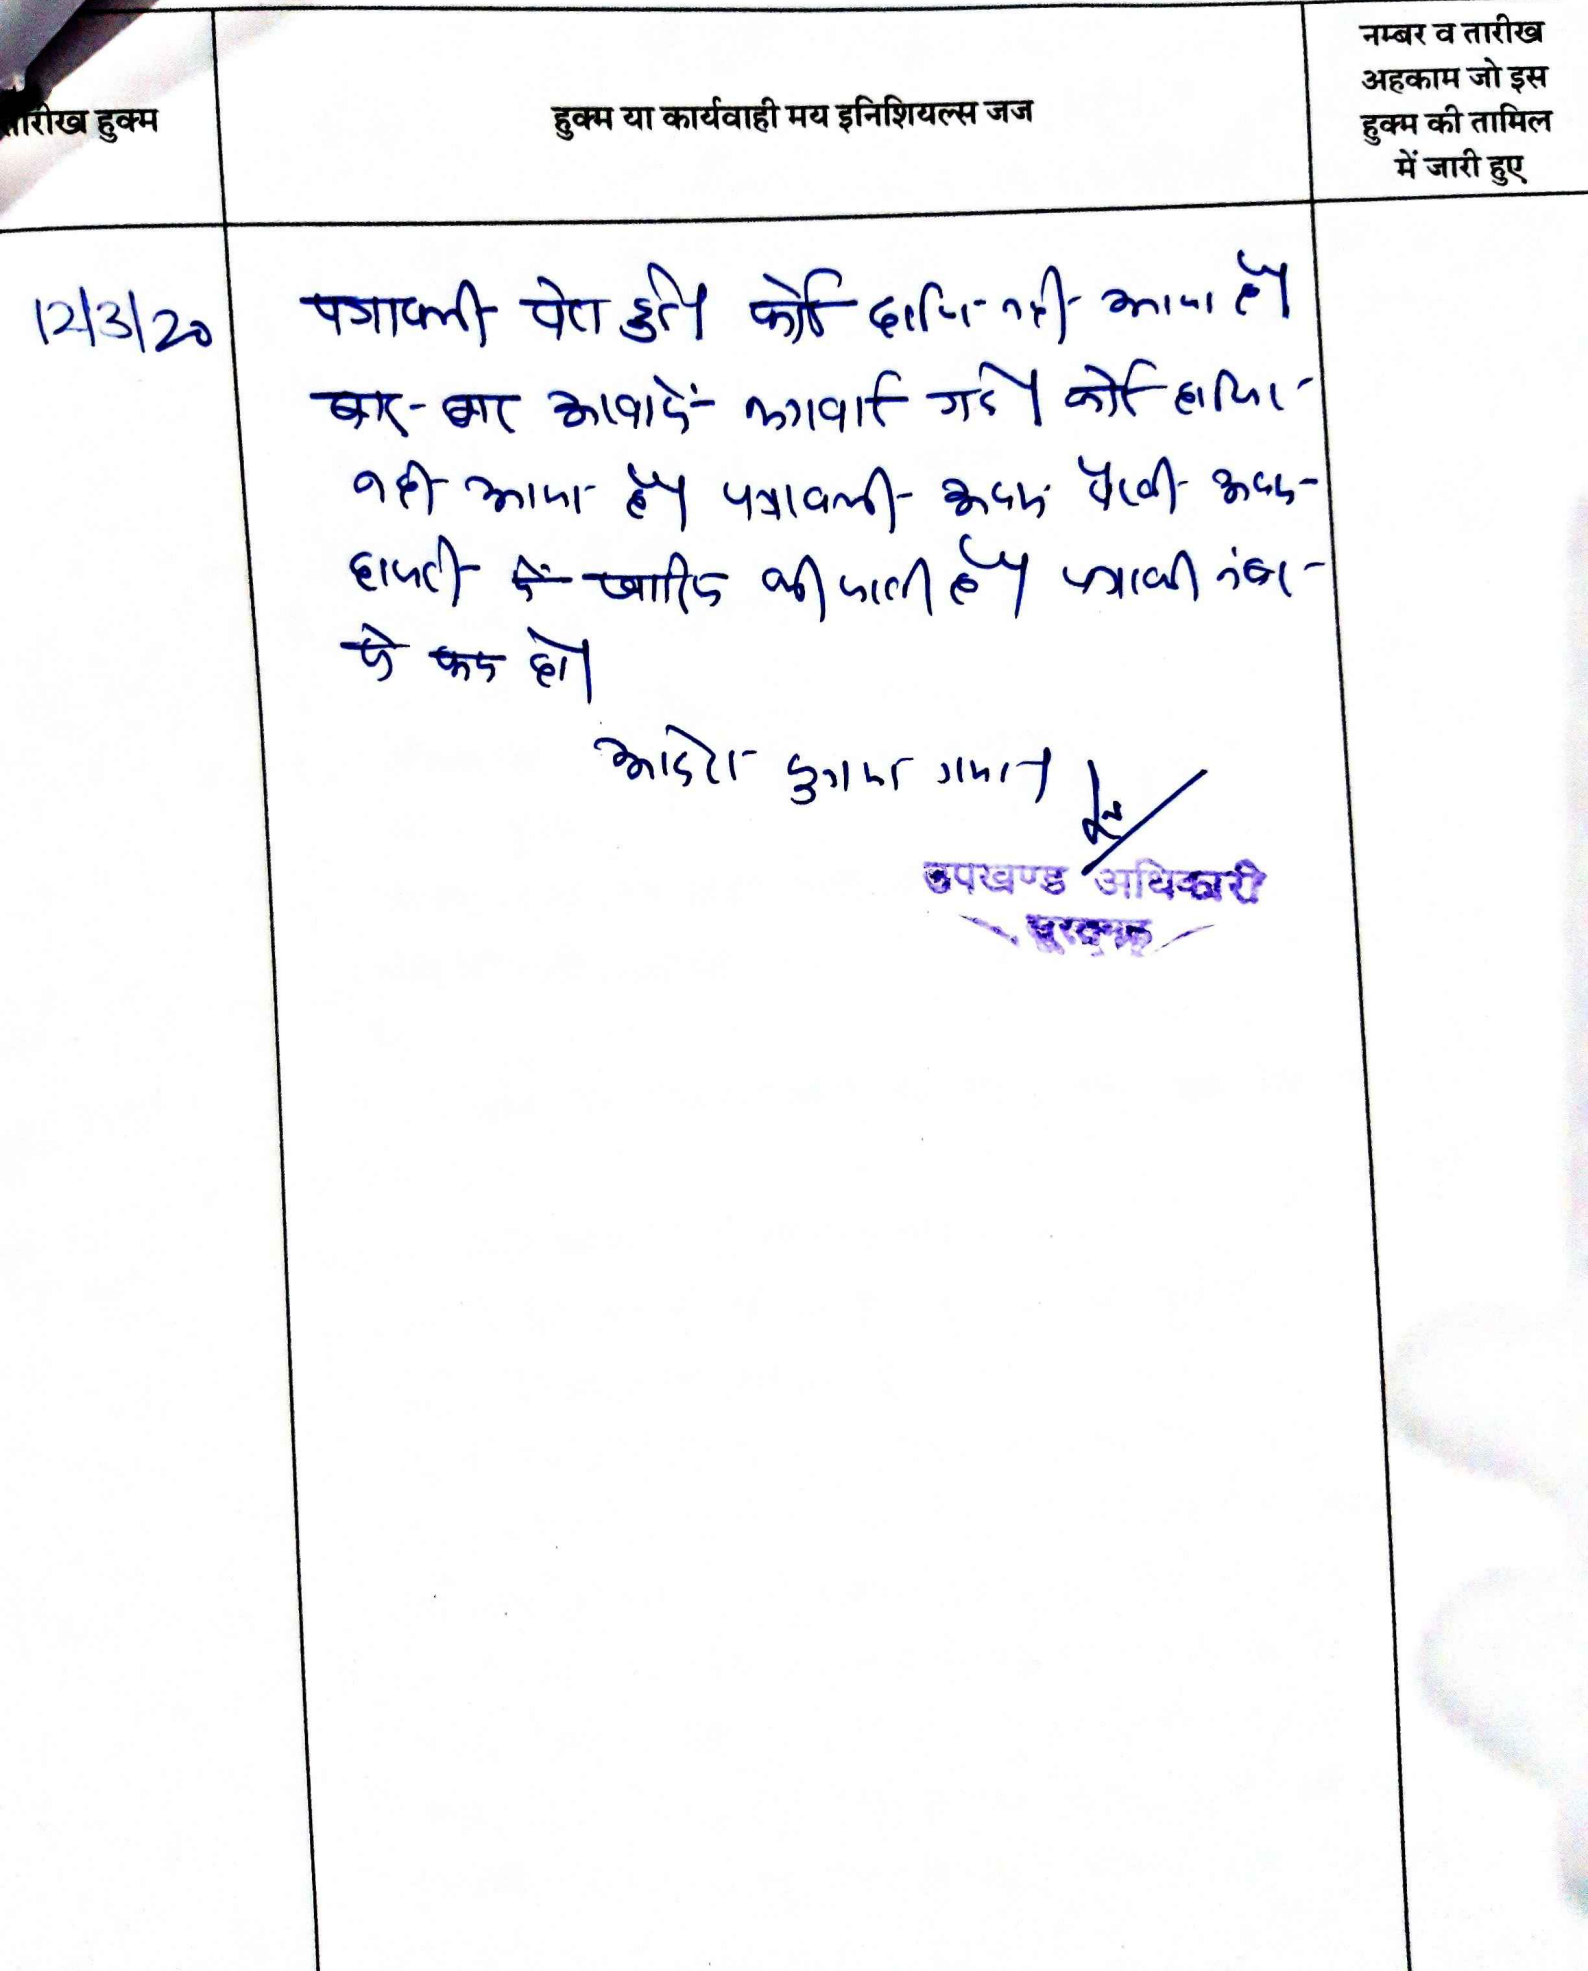 तारीख हुक्म
हुक्म या कार्यवाही मय इनिशियल्स जज
नम्बर व तारीख
अहकाम जो इस
हुक्म की तामिल
में जारी हुए
12/3/20
पत्रावली पेश हुई। कोई हाजिर नही आया है।
बार-बार आवाजें लगवाई गई। कोई हाजिर
नही आया है। पत्रावली अदम पैरवी अदम
हाजरी में खारिज की जाती है। पत्रावली नंबर
से कम हो।
आदेश सुनाया गया।
उपखण्ड अधिकारी